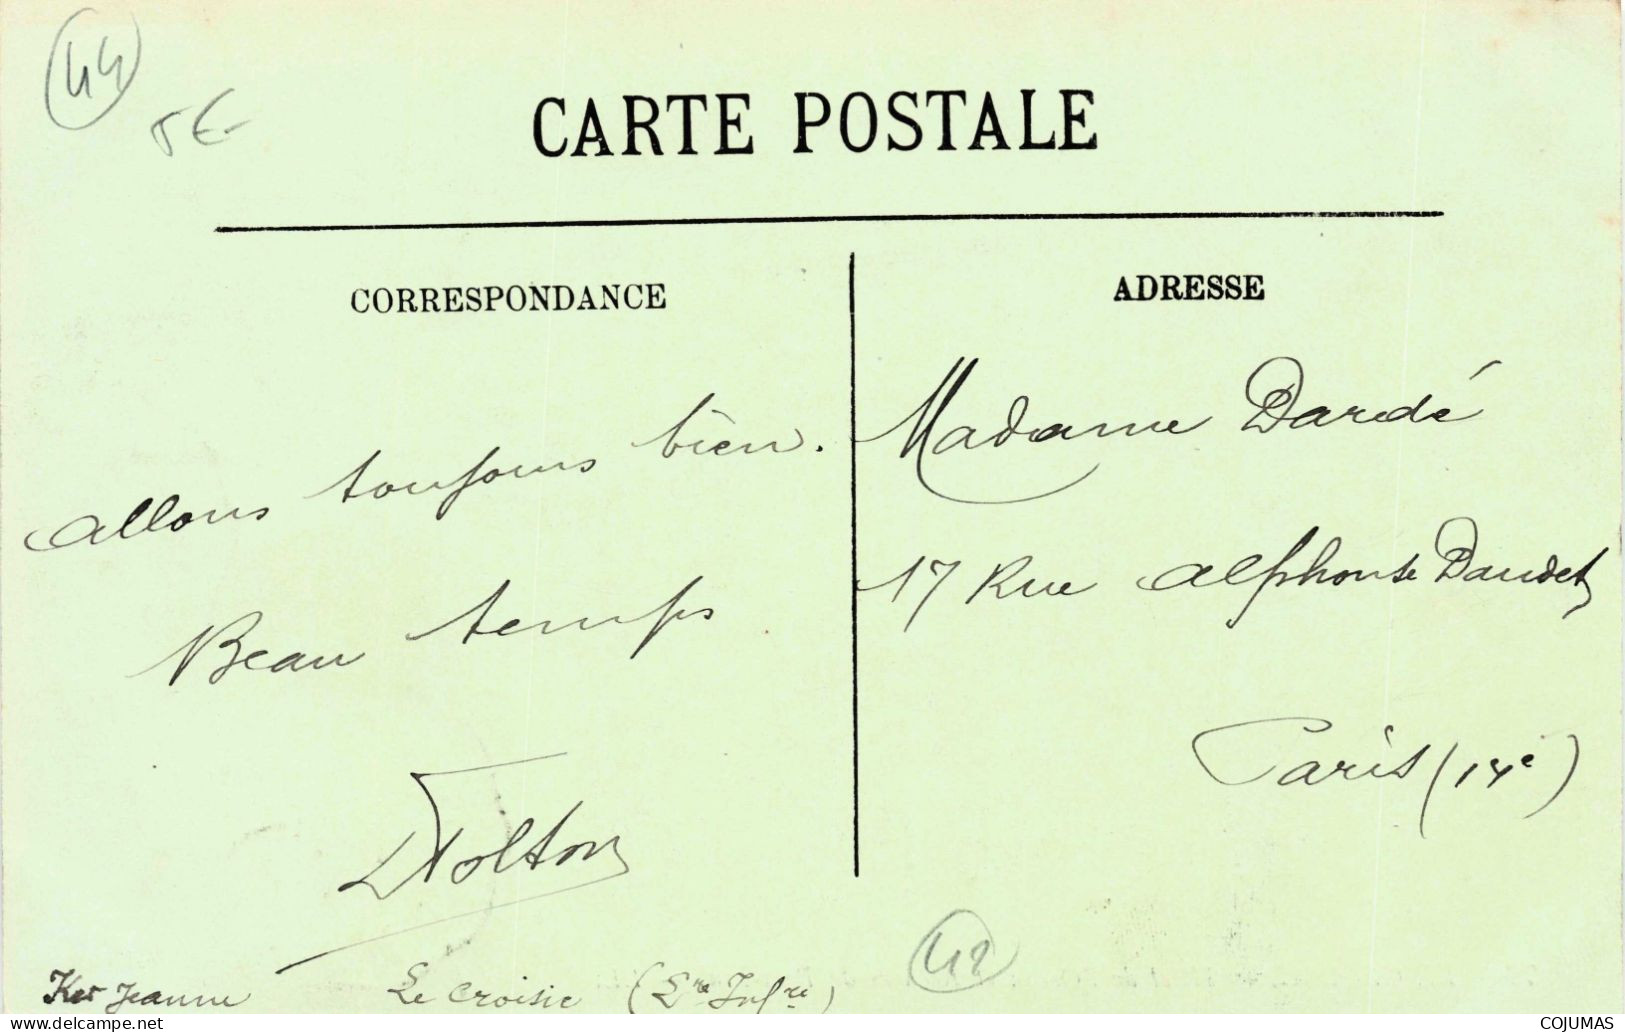 44
5€
CARTE POSTALE
CORRESPONDANCE
allons toujours bien.
Beau temps
Ker Jeanne Le Croisic (Lre Infre)
ADRESSE
Madame Dardé
17 Rue Alphonse Daudet
Paris (14e)
42
delcampe.net
COJUMAS